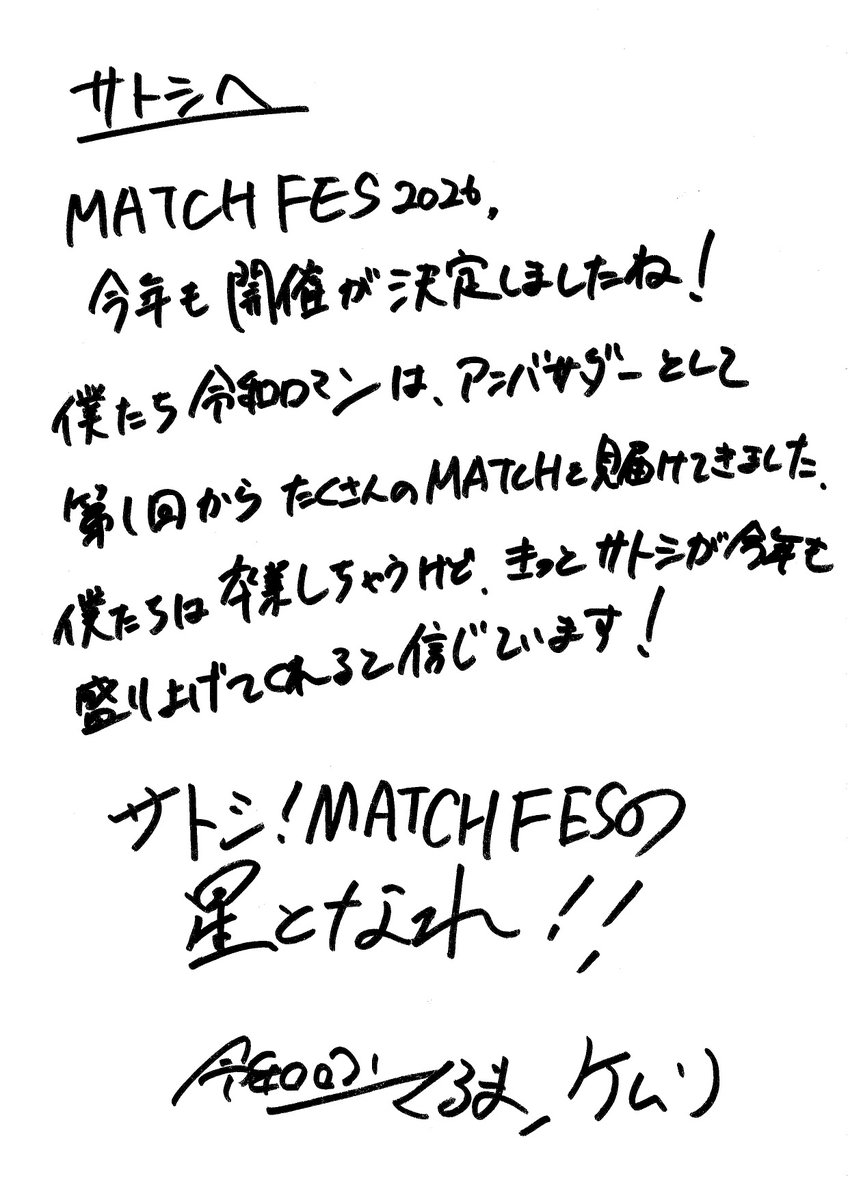 サトシへ
MATCH FES 2026,
今年も開催が決定しましたね!
僕たち令和ロマンは、アンバサダーとして
第1回からたくさんのMATCHを見届けてきました。
僕たちは卒業しちゃうけど、きっとサトシが今年も
盛り上げてくれると信じています!
サトシ!MATCH FESの
星となれ!!
令和ロマン くるま、ケムリ